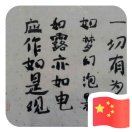 一切有为
如梦幻泡
如露亦如电
应作如是观